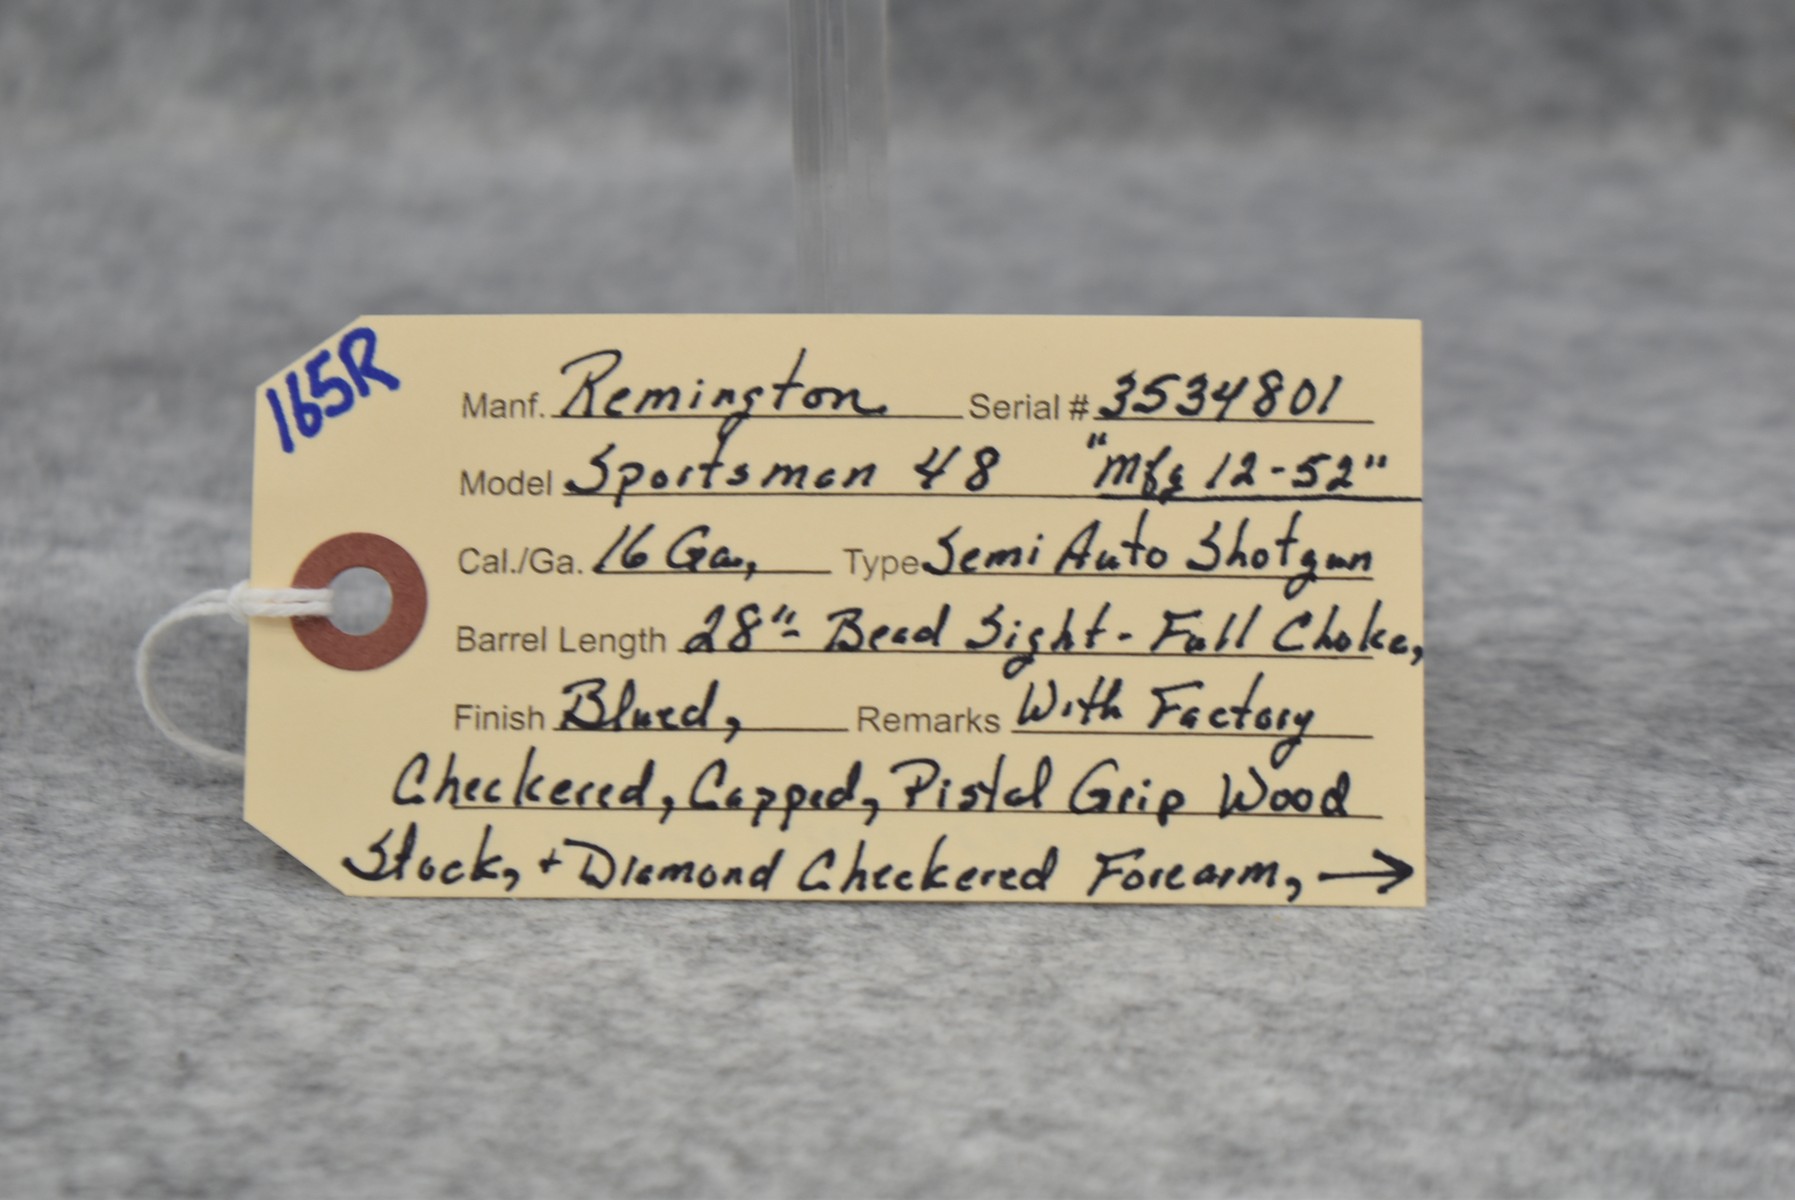 165R
Manf. Remington Serial # 3534801
Model Sportsman 48 "Mfg 12-52"
Cal./Ga. 16 Ga., Type Semi Auto Shotgun
Barrel Length 28"- Bead Sight - Full Choke,
Finish Blued, Remarks With Factory
Checkered, Capped, Pistol Grip Wood
Stock, + Diamond Checkered Forearm, →